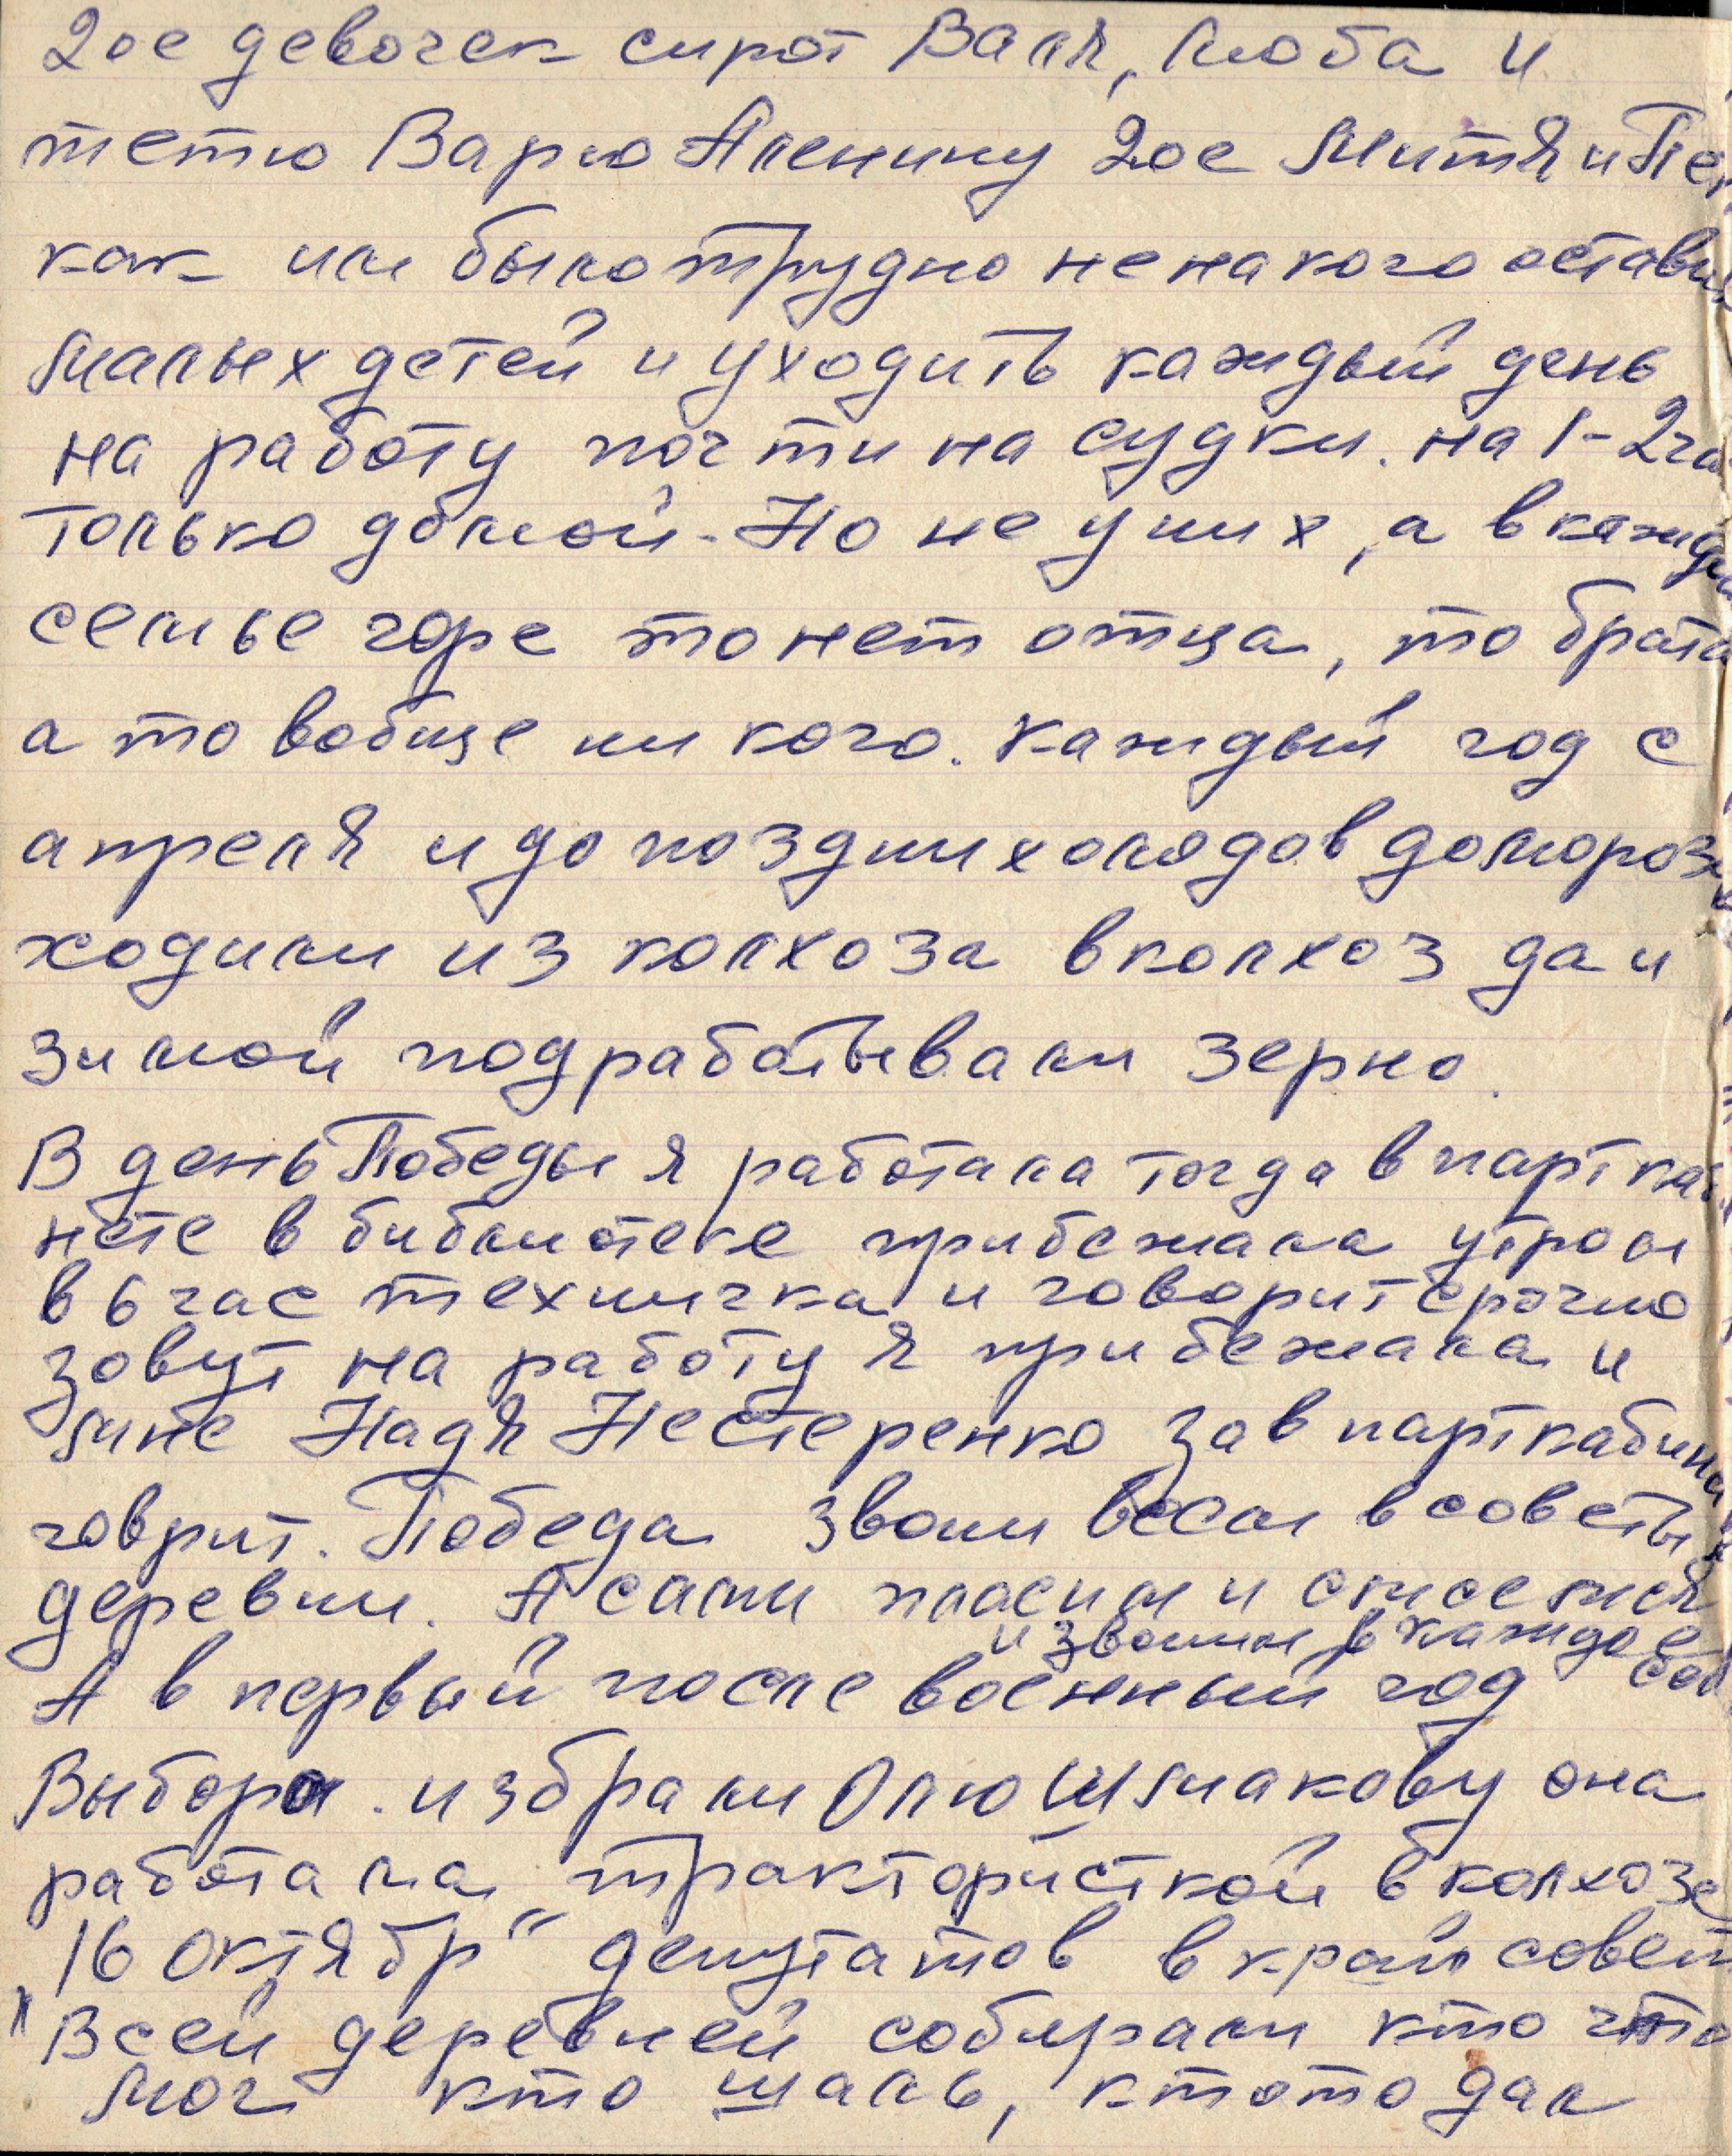 2ое девочек сирот Валя, Люба и
тетю Варю Аленину 2ое Митя и
как им было трудно не на кого остави
малых детей и уходить каждый день
на работу почти на судки. на 1-2 ча
только домой. Но не у них, а в кажд
семье горе то нет отца, то брата
а то вобще ни кого. каждый год с
апреля и до поздних олодов до мороз
ходили из колхоза в колхоз да и
зимой подрабатывали зерно.
В день Победы я работала тогда в парт каб
нете в библиотеке прибежала утром
в 6 час техничка и говорит срочно
зовут на работу я прибежала и
мне Надя Нестеренко зав парткабине
говрит. Победа звони всем в советы
деревни. А сами плосим и смсемся
и звоним в каждое
А в первый после военный год сел
Выборы. избрали Олю Шмакову она
работала трактористкой в колхозе
"16 Октябр" депутатов в край совет
"Всей деревней собирали кто что
мог кто шаль, ктото дал